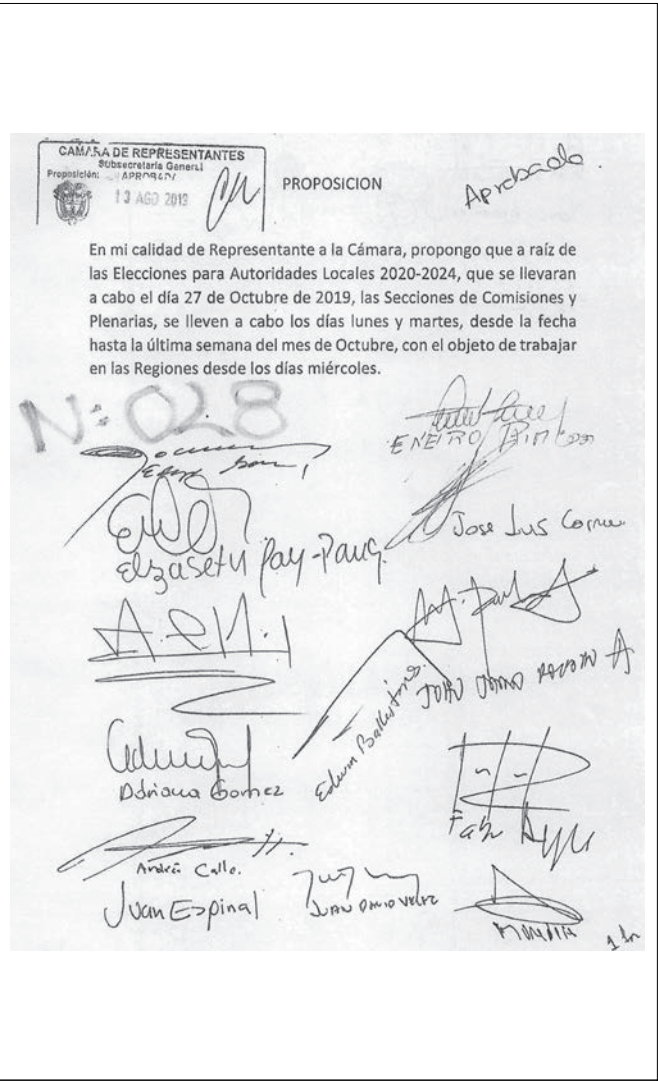 CAMARA DE REPRESENTANTES
Subsecretaria General
Proposición: APROBADA
13 AGO 2019
Aprobado.
PROPOSICION
En mi calidad de Representante a la Cámara, propongo que a raíz de
las Elecciones para Autoridades Locales 2020-2024, que se llevaran
a cabo el día 27 de Octubre de 2019, las Secciones de Comisiones y
Plenarias, se lleven a cabo los días lunes y martes, desde la fecha
hasta la última semana del mes de Octubre, con el objeto de trabajar
en las Regiones desde los días miércoles.
N: 028
Jose Luis Correa
Elizabeth Jay-Pang
Edwin Ballesteros
Adriana Gomez
Andrés Calle.
Juan Espinal
JUAN DAVID VELEZ